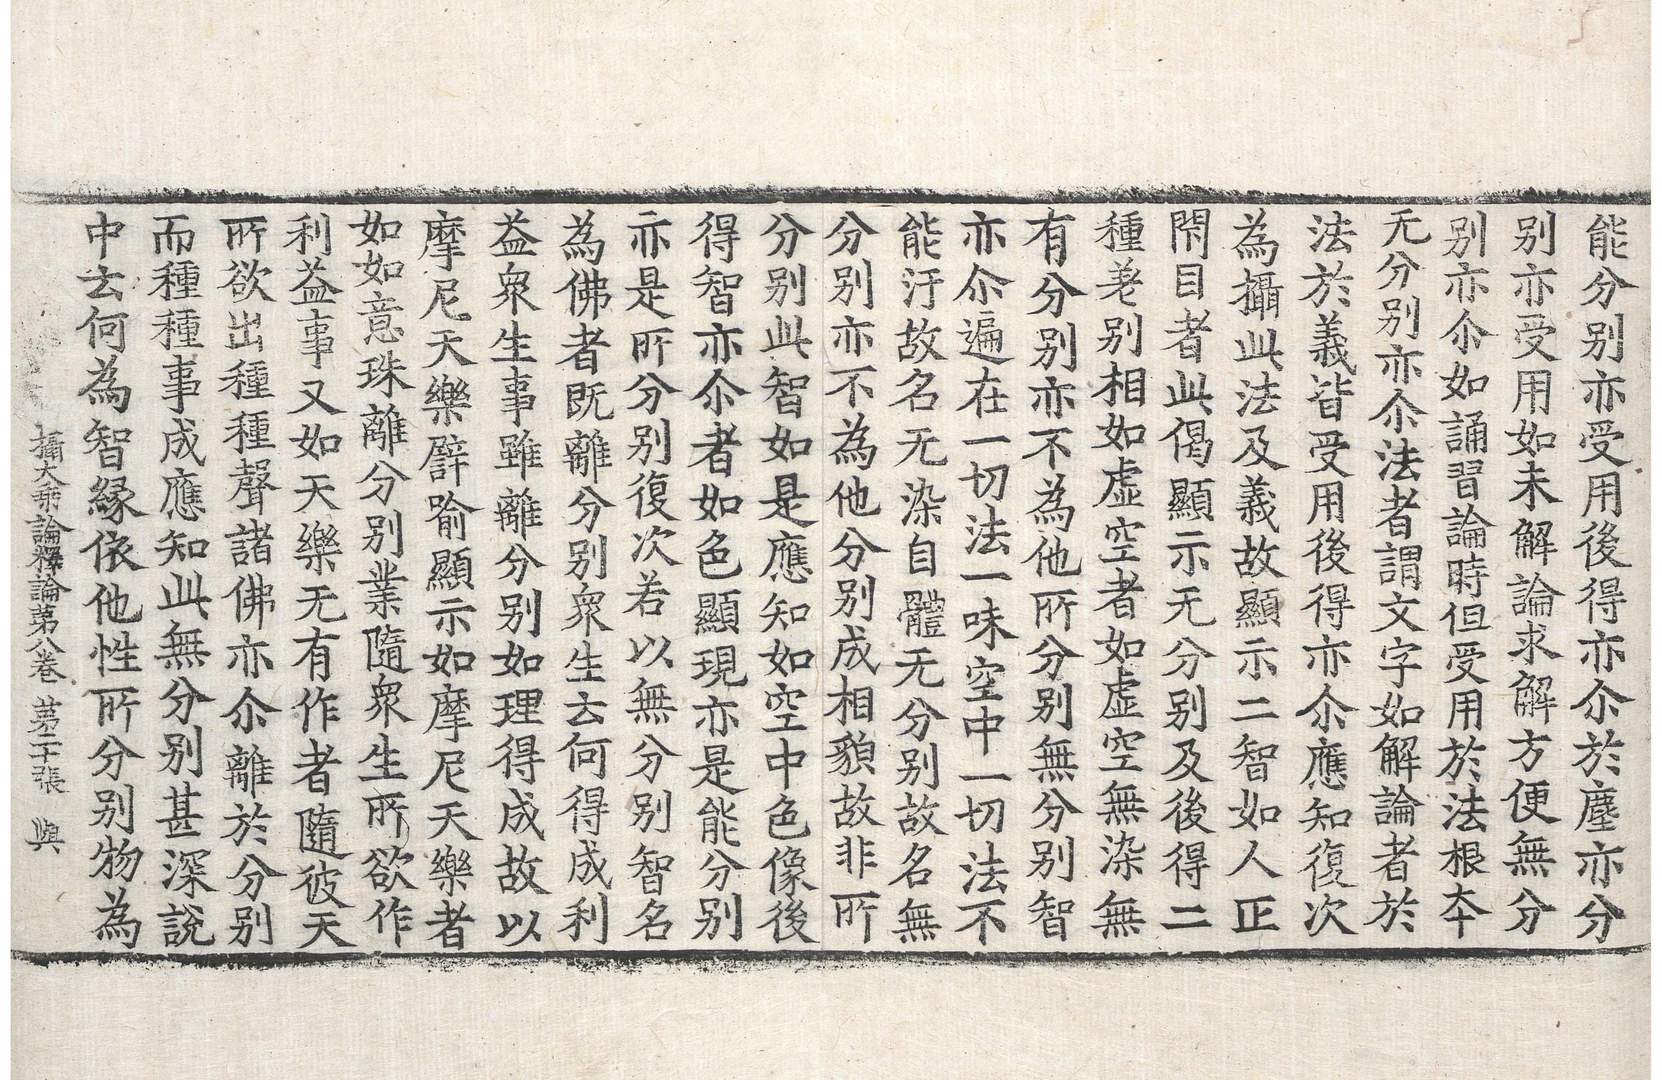 能分别亦受用後得亦尒於塵亦分
别亦受用如未解論求解方便無分
别亦尒如誦習論時但受用於法根本
无分别亦尒法者謂文字如解論者於
法於義皆受用後得亦尒應知復次
為攝此法及義故顯示二智如人正
閇目者此偈顯示无分别及後得二
種差别相如虛空者如虛空無染無
有分别亦不為他所分别無分别智
亦尒遍在一切法一味空中一切法不
能汙故名无染自體无分别故名無
分别亦不為他分别成相貌故非所
分别此智如是應知如空中色像後
得智亦尒者如色顯現亦是能分别
亦是所分别復次若以無分别智名
為佛者既離分别衆生去何得成利
益衆生事雖離分别如理得成故以
摩尼天樂譬喻顯示如摩尼天樂者
如如意珠離分别業隨衆生所欲作
利益事又如天樂无有作者隨彼天
所欲出種種聲諸佛亦尒離於分别
而種種事成應知此無分别甚深說
中去何為智緣依他性所分别物為
攝大乗論釋論第八卷 第二十張 與